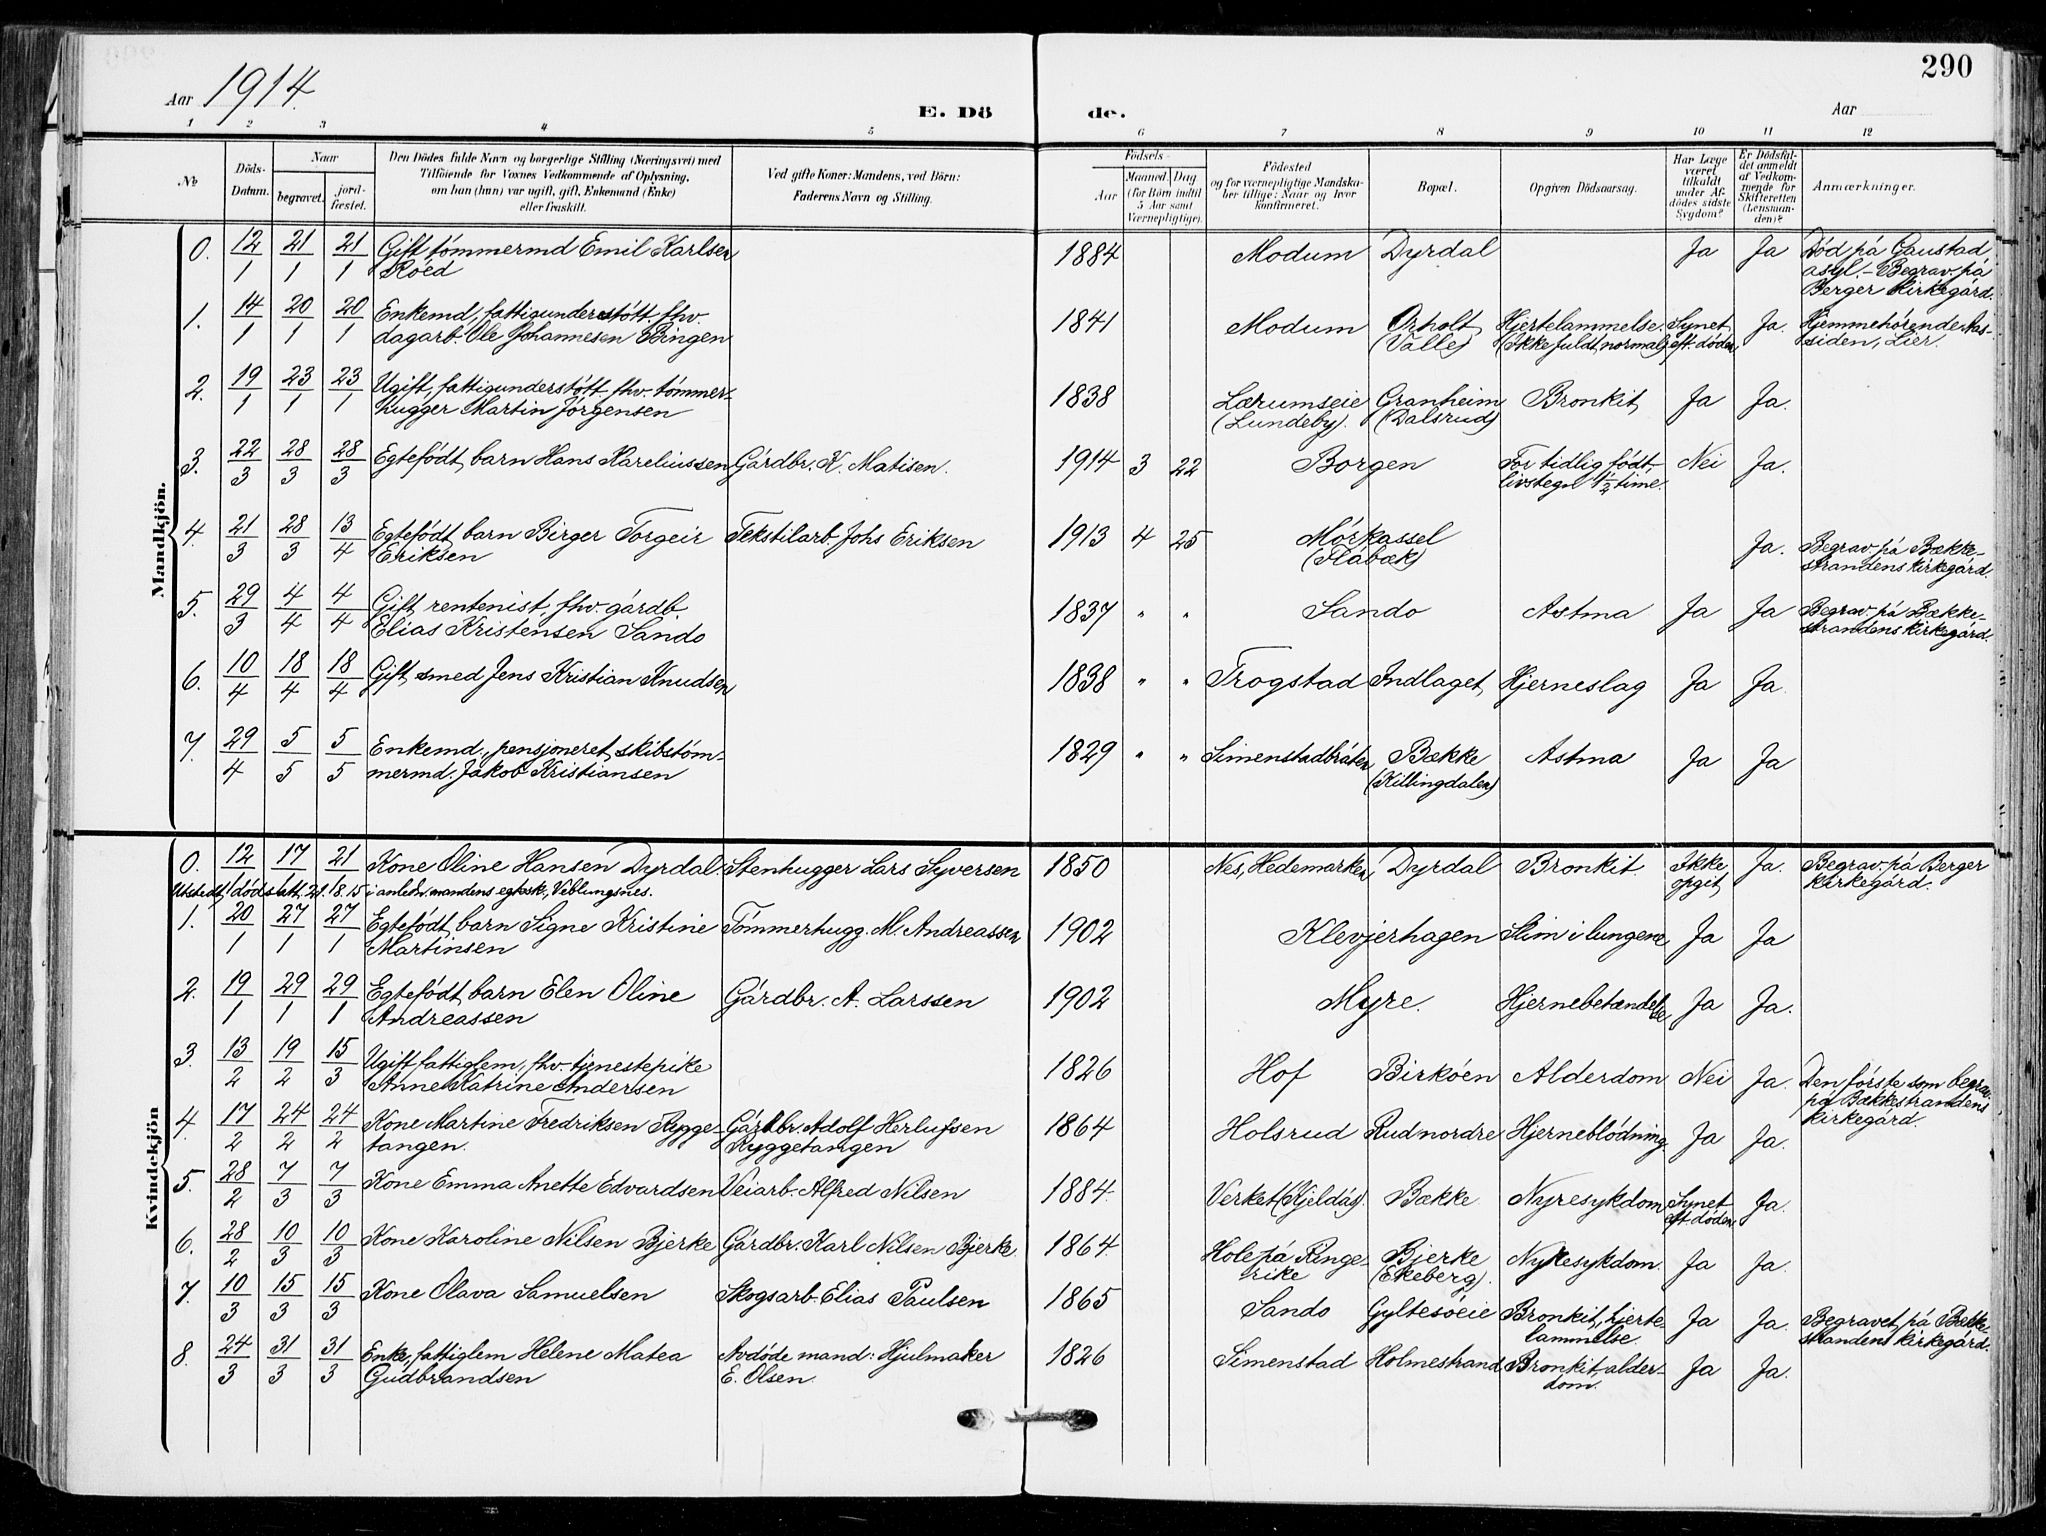 290
Aar 1914.
E. Dö de.
Aar
1 2 3 4 5 6 7 8 9 10 11 12
No
Döds-Datum.
Naar
begravet.
jord-fæstet.
Den Dödes fulde Navn og borgerlige Stilling (Næringsvei) med
Tilföiende for Voxnes Vedkommende af Oplysning,
om han (hun) var ugift, gift, Enkemand (Enke)
eller fraskilt.
Ved gifte Koner: Mandens, ved Börn:
Faderens Navn og Stilling.
Födsels-
Aar
Maaned. Dag
(for Börn indtil
5 Aar samt
Værnepligtige).
Födested
og for værnepligtige Mandska-
ber tillige: Naar og hvor
konfirmeret.
Bopæl.
Opgiven Dödsaarsag.
Har Læge
været
tilkaldt
under Af-
dödes sidste
Sygdom?
Er Dödsfal-
det anmeldt
af Vedkom-
mende for
Skifteretten
(Lensman-
den)?
Anmærkninger.
Mandkjön.
0. 12/1 21/1 21/1 Gift tömmermd Emil Karlsen 1884 Modum Dyrdal Ja Ja Död på Gaustad
Röed asyl. - Begrav. på
Berger kirkegård.
1. 14/1 20/1 20/1 Enkemd, fattigunderstött. fhv. 1841 Modum Orholt Hjertelammelse. Synet Ja. Hjemmehörende
dagarb. Ole Johannesen Bingen (Valle) (Ikke fuldt normal) eft. döden siden, Lier.
2. 19/1 23/1 23/1 Ugift, fattigunderstött fhv. tömmer- 1838 Lærumseie Granheim Bronkit Ja Ja.
hugger Martin Jörgensen (Lundeby). (Dalsrud)
3. 22/3 28/3 28/3 Egtefödt barn Hans Kareliussen Gårdbr. K. Matisen. 1914 3 22 Borgen For tidlig födt, Nei Ja.
livstegn 1/2 time.
4. 21/3 28/3 13/4 Egtefödt barn Birger Torgeir Tekstilarb. Johs Eriksen 1913 4 25 Mörkassel Ja. Begrav. på Bække-
Eriksen (Flåbæk) strandens kirkegård.
5. 29/3 4/4 4/4 Gift rentenist, fhv. gårdb. 1837 " " Sando Astma Ja Ja Begrav. på Bække-
Elias Kristensen Sando strandens kirkegård.
6. 10/4 18/4 18/4 Gift smed Jens Kristian Knudsen 1838 " " Trogstad Indlaget Hjerneslag Ja Ja.
7. 29/4 5/5 5/5 Enkemd., pensjoneret skibstöm- 1829 " " Simenstadbråten Bække Astma Ja Ja
mermd. Jakob Kristiansen (Killingdalen)
Kvindekjön
0. 12/1 17/1 21/1 Kone Oline Hansen Dyrdal Stenhugger Lars Syversen 1850 Nes, Hedemarken Dyrdal Bronkit. Ikke Ja. Begrav. på Berger
opgit kirkegård.
Utstedt dödsatt. 21/1 18.15 i anledn. mandens egtesk, Veblungsnes.
1. 20/1 27/1 27/1 Egtefödt barn Signe Kristine Tömmerhugg. M. Andreassen 1902 Klevjerhagen Slim i lungene Ja Ja
Martinsen
2. 19/1 29/1 29/1 Egtefödt barn Elen Oline Gårdbr. A. Larssen 1902 Myre. Hjernebetændelse Ja Ja.
Andreassen
3. 13/2 19/2 15/3 Ugift fattiglem, fhv. tjenestepike 1826 Hof Birköen Alderdom Nei Ja. Den förste som begrav.
Anne Katrine Andersen på Bækkestrandens
kirkegård.
4. 17/2 24/2 24/2 Kone Martine Fredriksen Rygge- Gårdbr. Adolf Herlufsen 1864 Holsrud Rud nordre Hjerneblödning. Ja Ja.
tangen. Ryggetangen
5. 28/2 7/3 7/3 Kone Emma Anette Edvardsen Veiarb. Alfred Nilsen 1884. Verket (Kjeldås). Bække Nyresykdom Synet Ja.
eft döden
6. 28/2 10/3 10/3 Kone Karoline Nilsen Bjerke Gårdbr. Karl Nilsen Bjerke 1864. Hole på Ringe- Bjerke Nykesykdom. Ja Ja.
rike (Ekeberg).
7. 10/3 15/3 15/3 Kone Olava Samuelsen Skogsarb. Elias Paulsen 1865 Sando Gyltesöeie Bronkit, hjerte- Ja Ja. Begravet på Bække-
lammelse. strandens kirkegård.
8. 24/3 31/3 31/3 Enke, fattiglem Helene Matea Avdöde mand: Hjulmaker 1826 Simenstad Holmestrand Bronkit, alder- Ja Ja.
Gudbrandsen E. Olsen. dom.